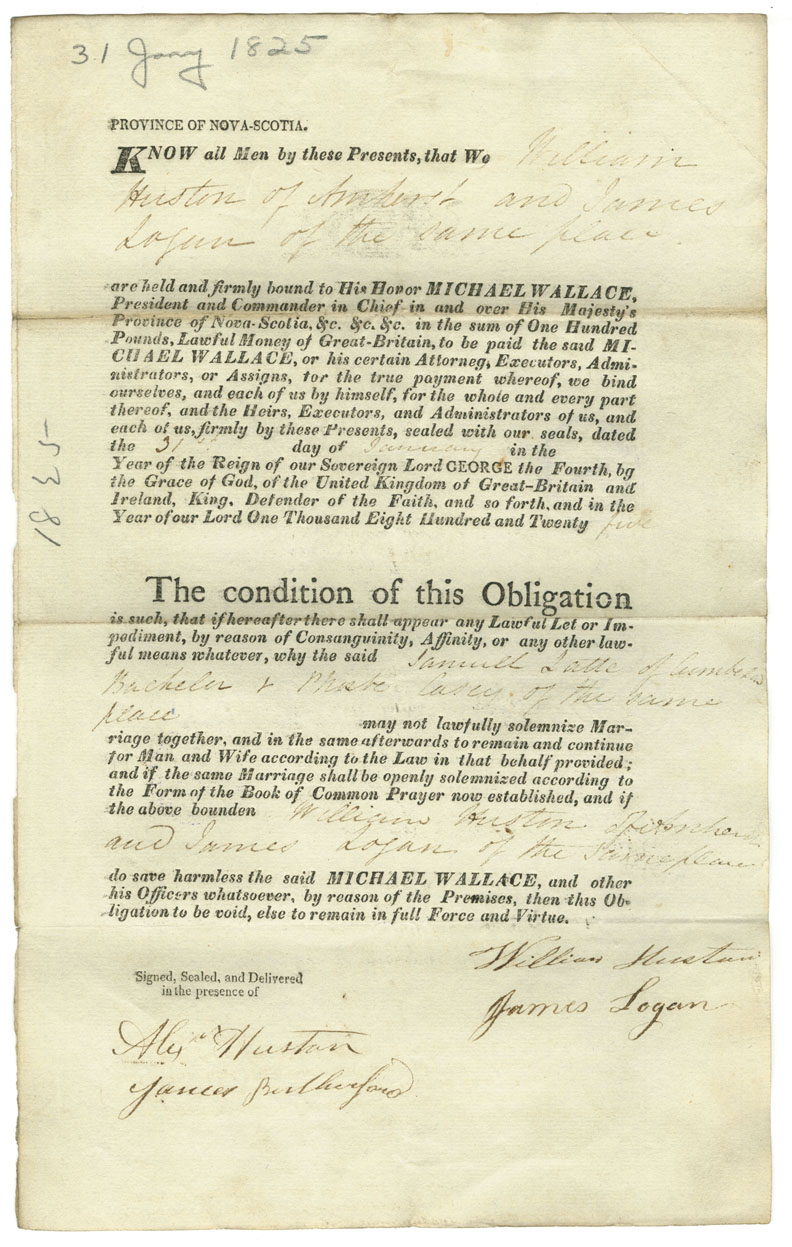 31 Jany 1825
PROVINCE OF NOVA-SCOTIA.
KNOW all Men by these Presents, that We William
Huston of Amherst and James
Logan of the same place.
are held and firmly bound to His Honor MICHAEL WALLACE,
President and Commander in Chief in and over His Majesty's
Province of Nova-Scotia, &c. &c. &c. in the sum of One Hundred
Pounds, Lawful Money of Great-Britain, to be paid the said MI-
CHAEL WALLACE, or his certain Attorney, Executors, Admi-
nistrators, or Assigns, for the true payment whereof, we bind
ourselves, and each of us by himself, for the whole and every part
thereof, and the Heirs, Executors, and Administrators of us, and
each of us, firmly by these Presents, sealed with our seals, dated
the 31 day of January in the
Year of the Reign of our Sovereign Lord GEORGE the Fourth, by
the Grace of God, of the United Kingdom of Great-Britain and
Ireland, King, Defender of the Faith, and so forth, and in the
Year of our Lord One Thousand Eight Hundred and Twenty five
1825
The condition of this Obligation
is such, that if hereafter there shall appear any Lawful Let or Im-
pediment, by reason of Consanguinity, Affinity, or any other law-
ful means whatever, why the said Samuel of
Bachelor & Phebe Casey of the same
place may not lawfully solemnize Mar-
riage together, and in the same afterwards to remain and continue
for Man and Wife according to the Law in that behalf provided;
and if the same Marriage shall be openly solemnized according to
the Form of the Book of Common Prayer now established, and if
the above bounden William Huston of Amherst
and James Logan of the same place
do save harmless the said MICHAEL WALLACE, and other
his Officers whatsoever, by reason of the Premises, then this Ob-
ligation to be void, else to remain in full Force and Virtue.
William Huston
James Logan
Signed, Sealed, and Delivered
in the presence of
Alexr Huston
James Rutherford